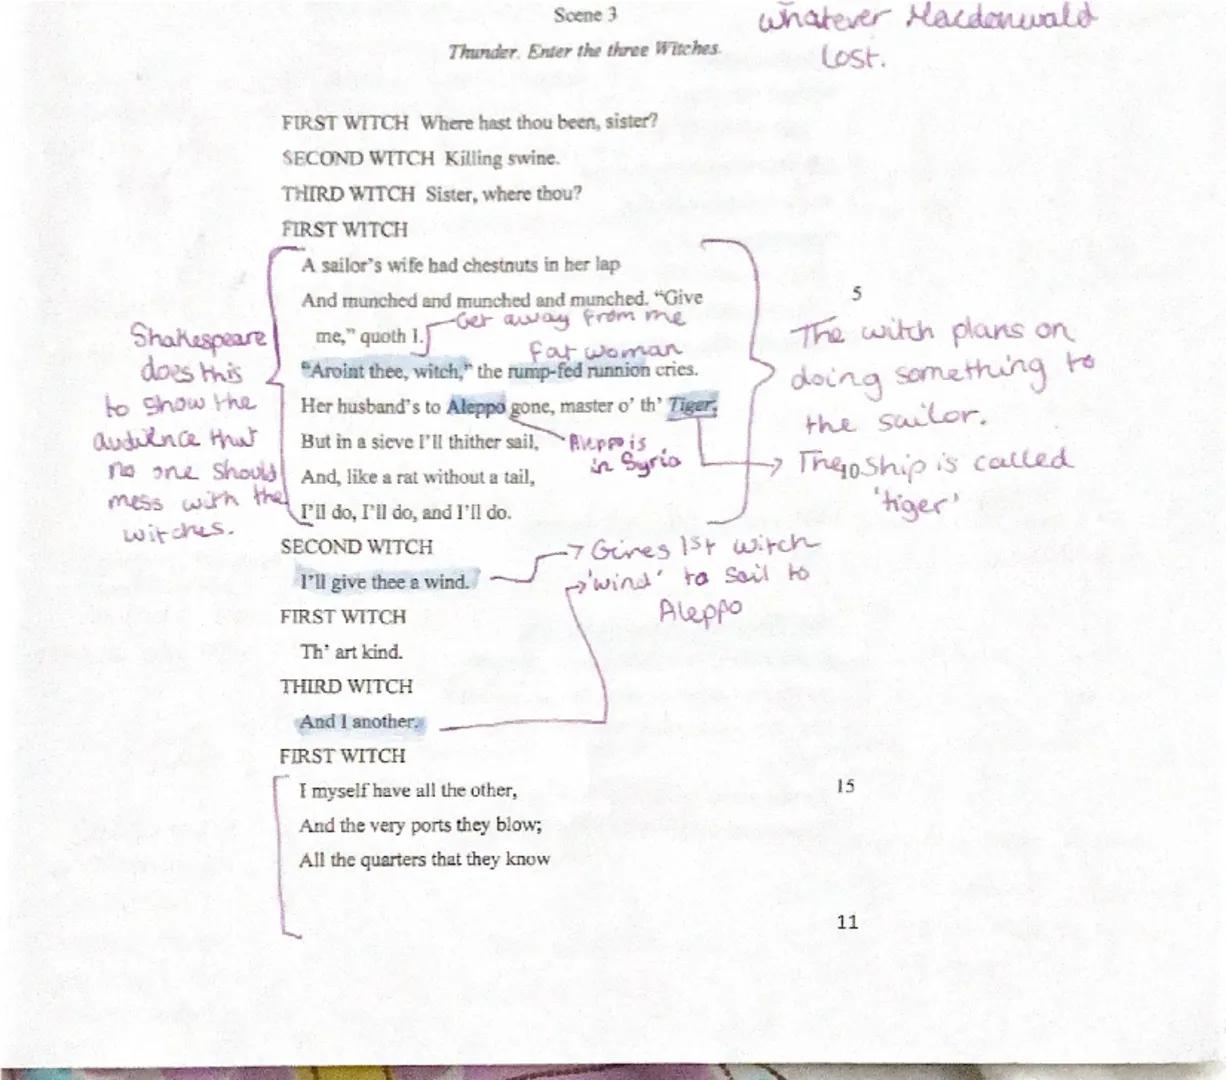 Scene 3
whatever Macdonwald
lost.
Thunder. Enter the three Witches.
FIRST WITCH Where hast thou been, sister?
SECOND WITCH Killing swine.
THIRD WITCH Sister, where thou?
FIRST WITCH
A sailor's wife had chestnuts in her lap
And munched and munched and munched. "Give
5
me," quoth I.
Get away from me
fat woman
"Aroint thee, witch," the rump-fed runnion cries.
Her husband's to Aleppo gone, master o' th' Tiger,
But in a sieve I'll thither sail,
And, like a rat without a tail,
10
I'll do, I'll do, and I'll do.
Shakespeare
does this
to show the
audience that
no one should
mess with the
witches.
Aleppo is
in Syria
The witch plans on
doing something to
the sailor.
The ship is called
'tiger'
SECOND WITCH
I'll give thee a wind.
Gives 1st witch
'wind' to sail to
Aleppo
FIRST WITCH
Th' art kind.
THIRD WITCH
And I another.
FIRST WITCH
I myself have all the other,
15
And the very ports they blow;
All the quarters that they know
11